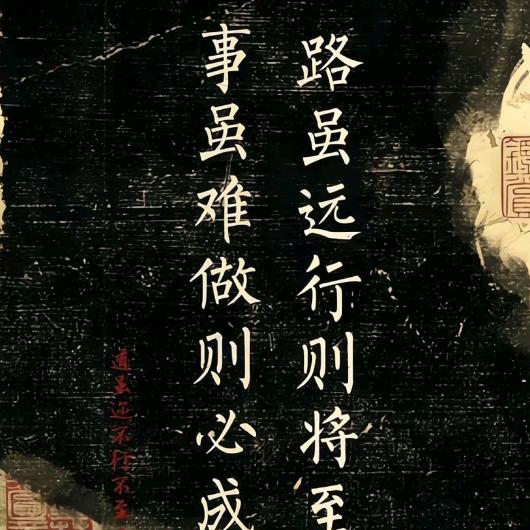 路虽远行则将至
事虽难做则必成
道虽迩不行不至